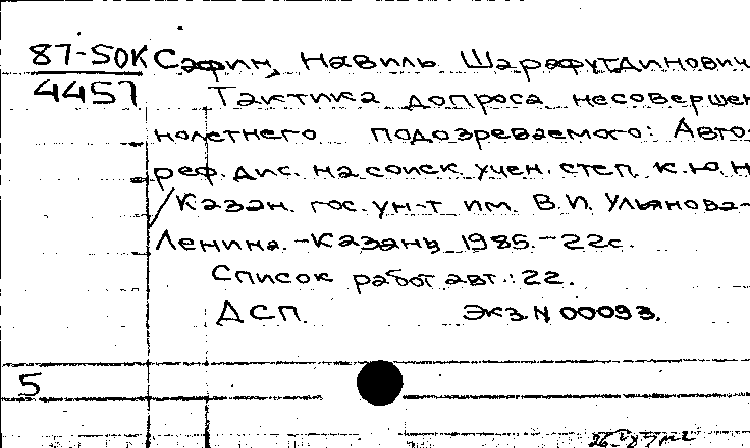 87-50К Сафин, Навиль Шарафутдинович
4457 Тактика допроса несовершен
нолетнего подозреваемого: Авто
реф. дис. на соиск. учен. степ. к.ю.н
/Казан. гос. ун-т им. В.И. Ульянова-
Ленина. - Казань, 1985. - 22с.
Список работ авт.: 22.
ДСП. Экз. N 00093.
5